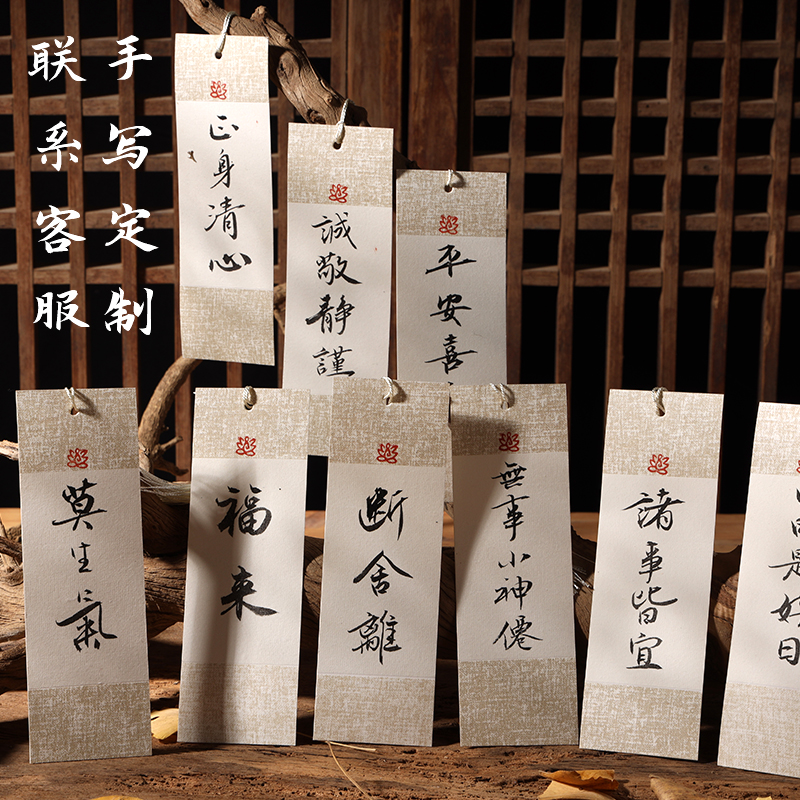 手写定制
联系客服
正身清心
誠敬静謹
平安喜
莫生氣
福来
断舍離
無事小神僊
諸事皆宜
日是好日